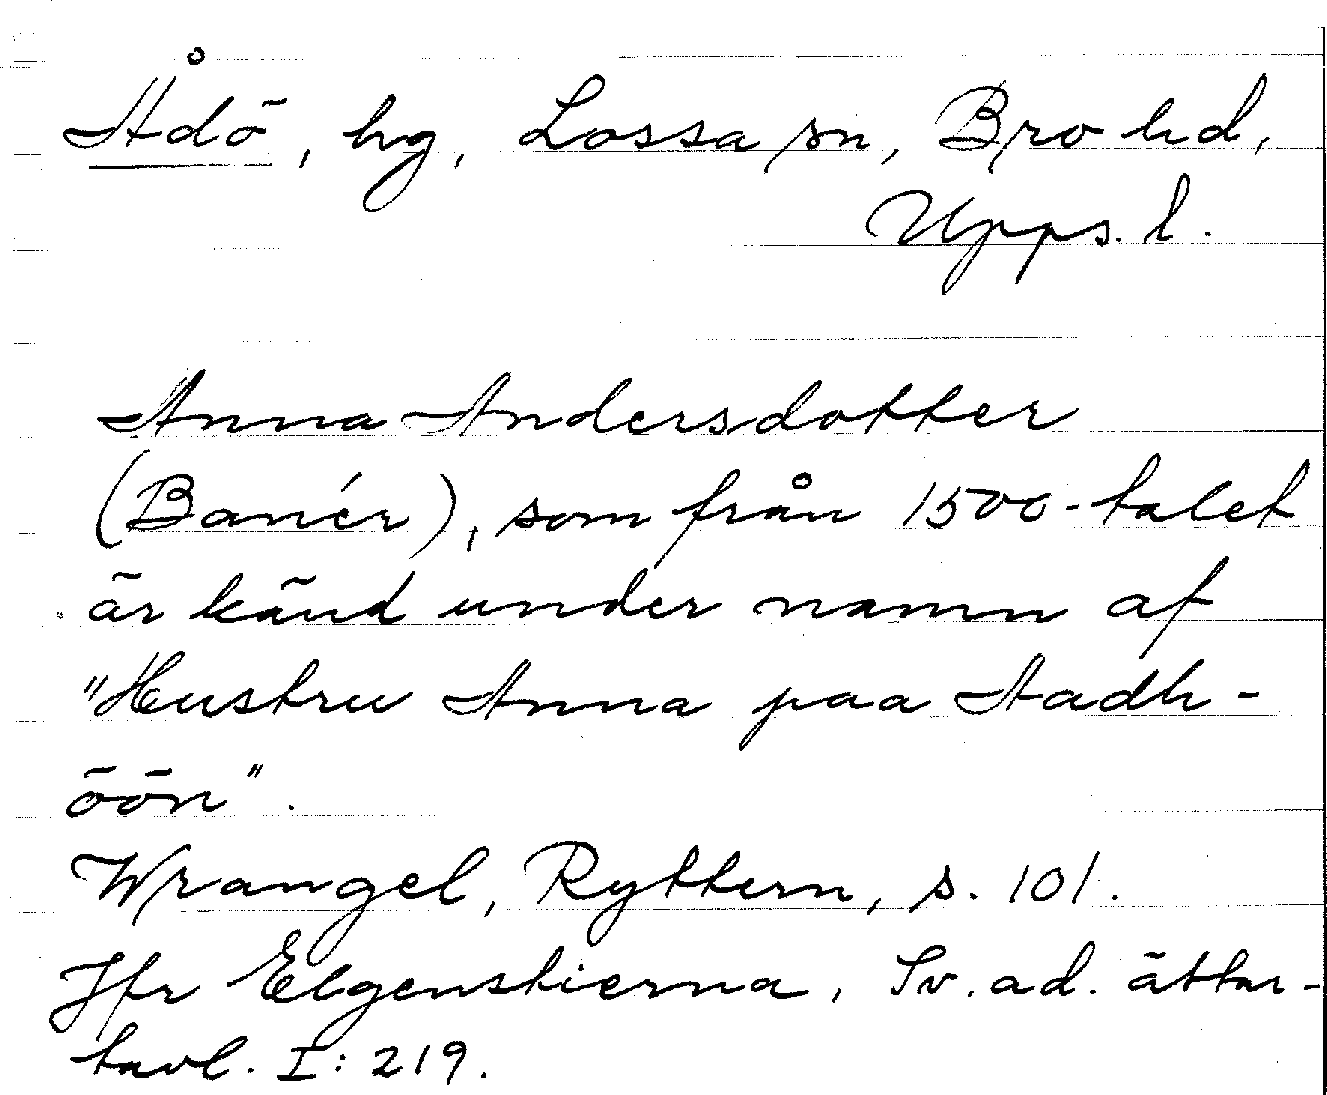 Ådö, hg, Lossa sn, Bro hd,
Upps. l.
Anna Andersdotter
(Banér), som från 1500-talet
är känd under namn af
"Hustru Anna paa Aadh-
öön".
Wrangel, Ryttern, s. 101.
Jfr Elgenstierna, Sv. ad. ättar-
tavl. I: 219.